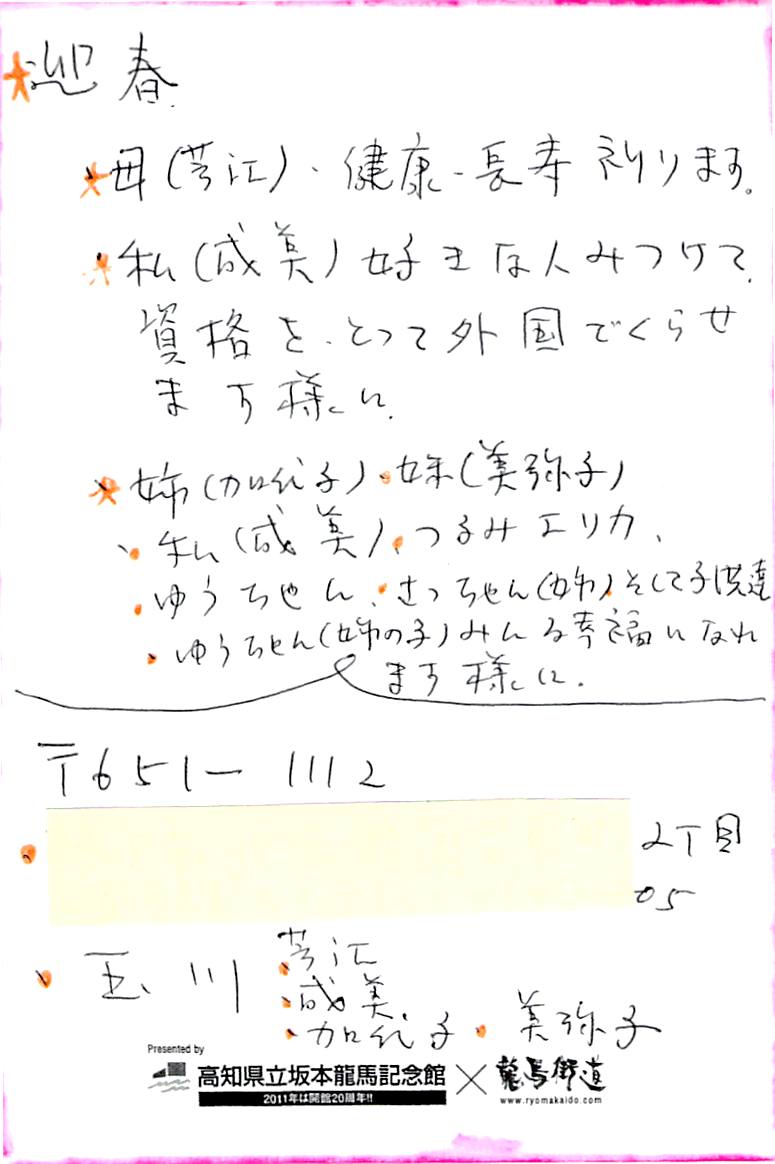 迎春
母(芳江)、健康・長寿祈ります。
私(成美)好きな人みつけて、
資格を、とって外国でくらせ
ます様に。
姉(加代子)・妹(美弥子)
・私(成美)、つるみエリカ、
・ゆうちゃん、さっちゃん(姉)、そして子供達
・ゆうちゃん(姉の子)みんな幸福になれ
ます様に。
〒651-1112
2丁目
05
・玉川 芳江
・成美
・加代子・美弥子
Presented by
高知県立坂本龍馬記念館×龍馬街道
2011年は開館20周年!!
www.ryomakaido.com